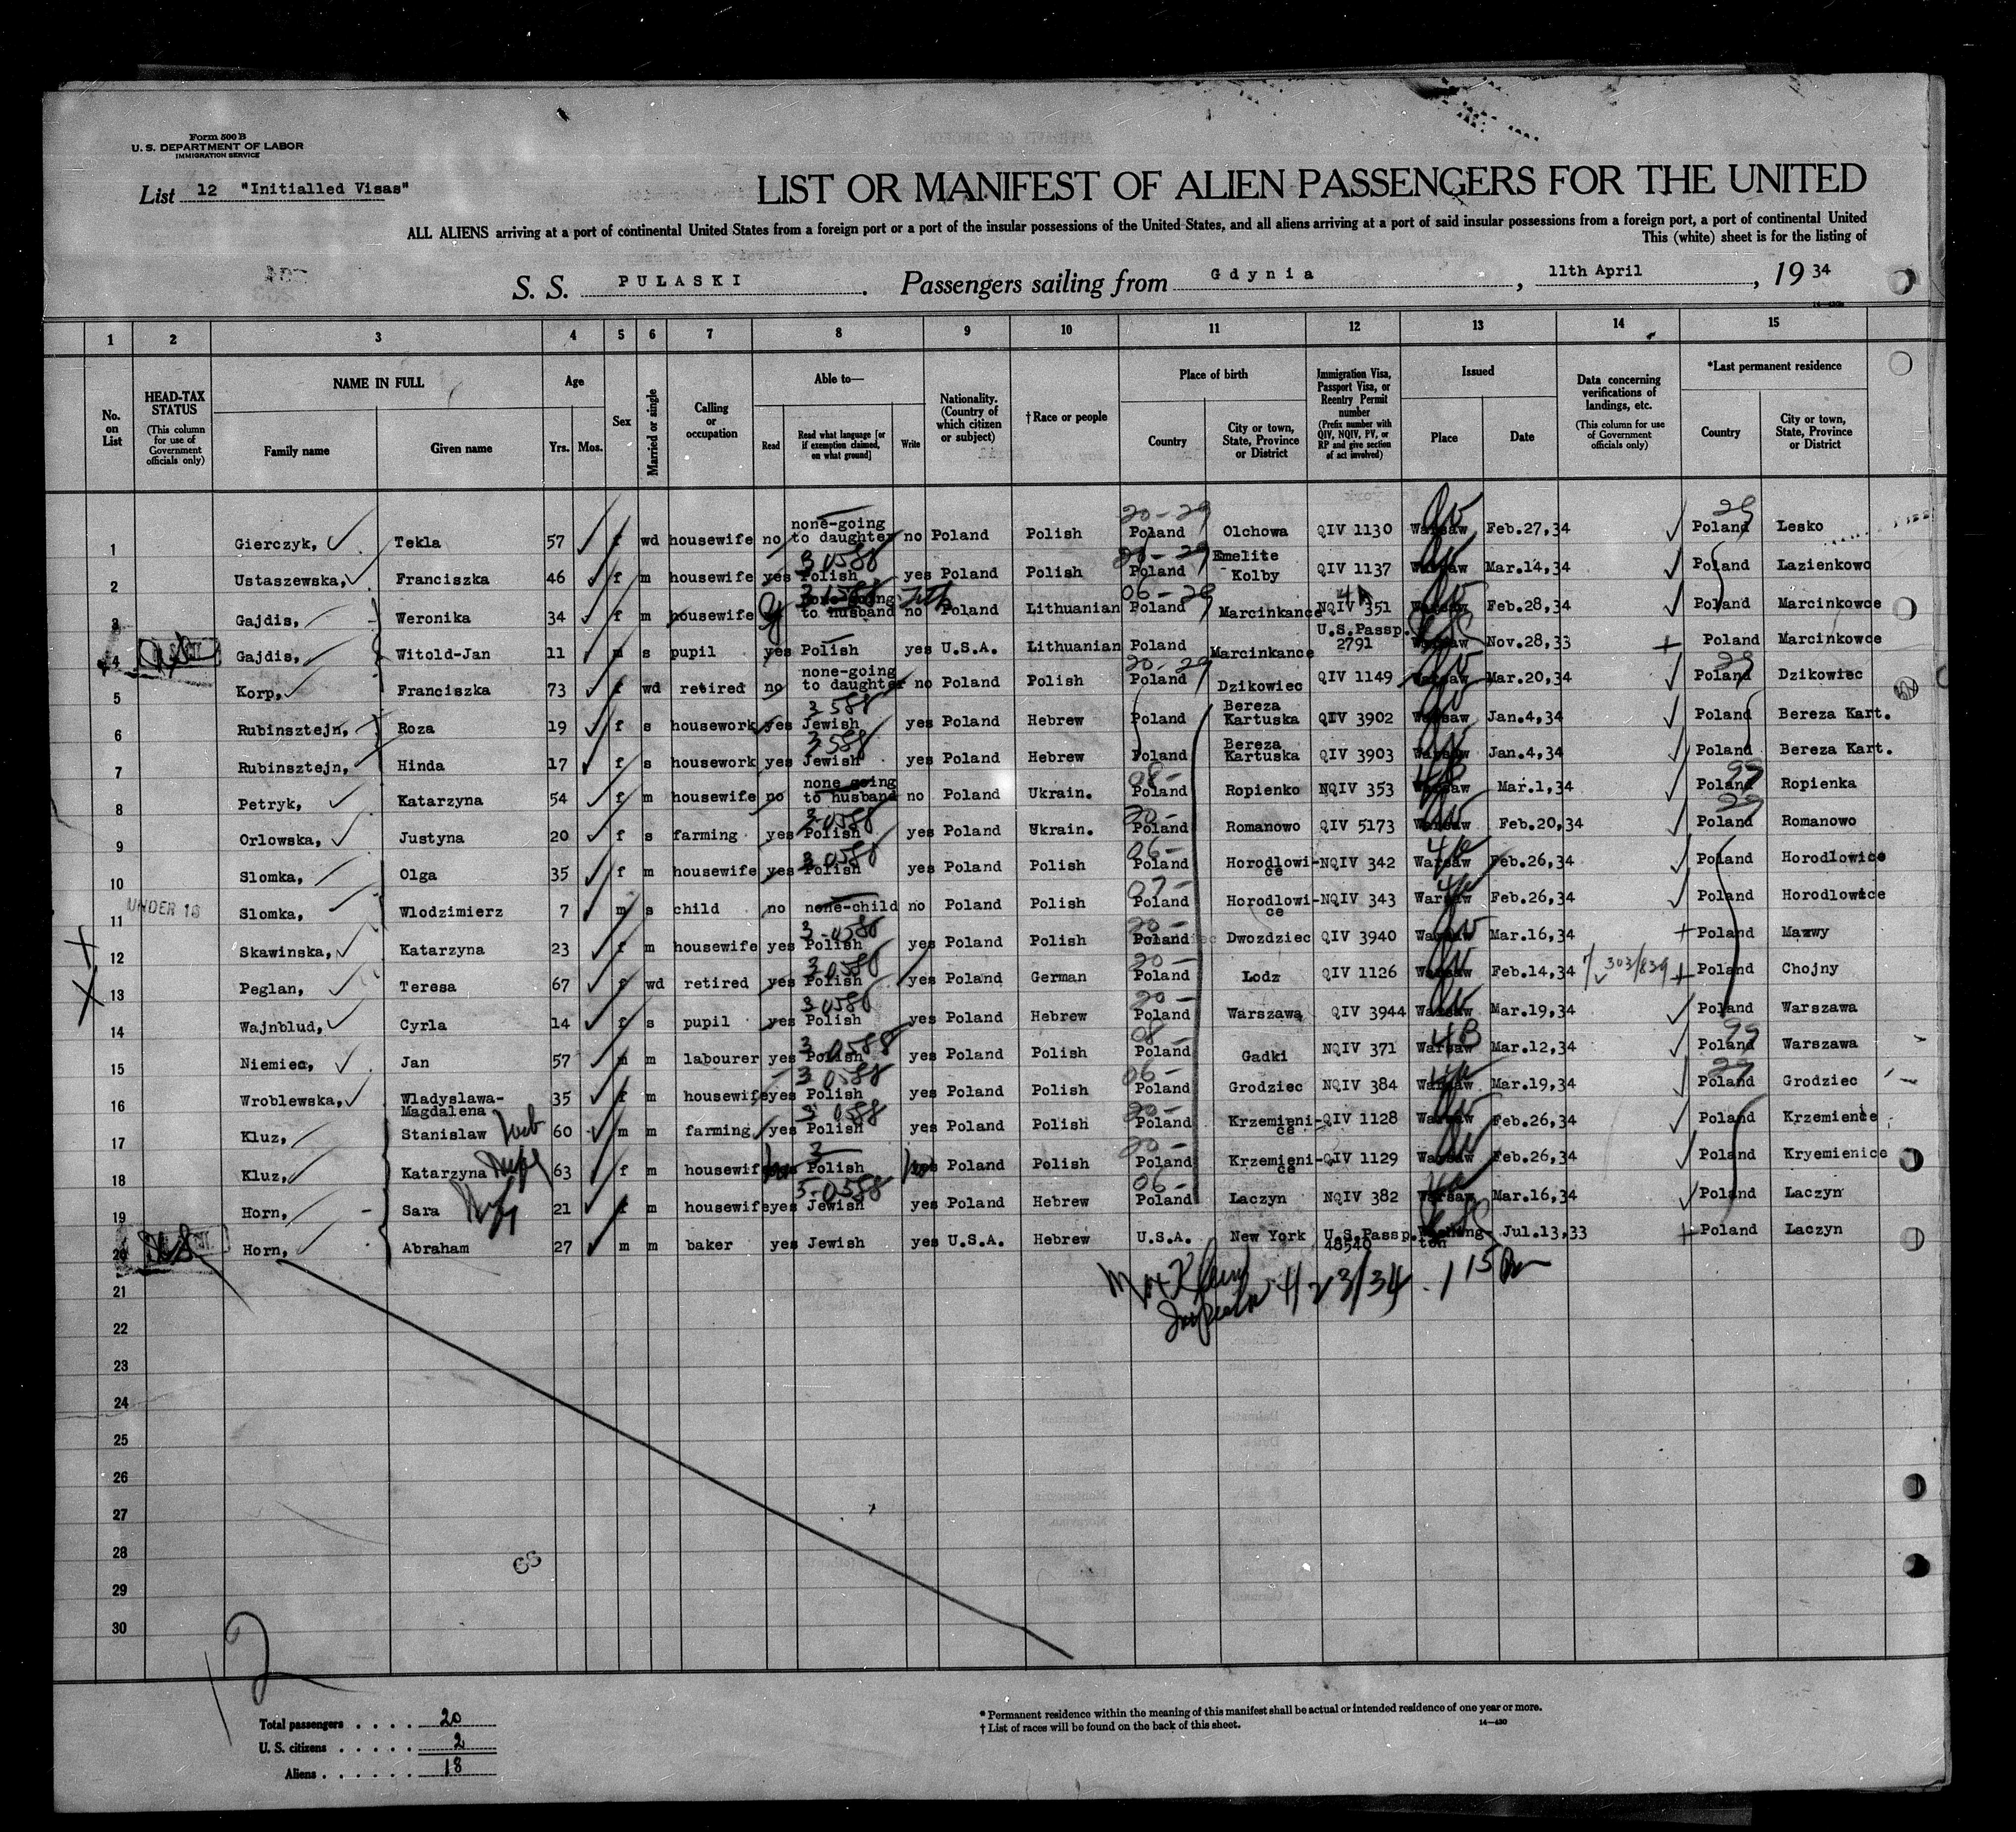 Form 500 B
U. S. DEPARTMENT OF LABOR
IMMIGRATION SERVICE
List 12 "Initialled Visas"
LIST OR MANIFEST OF ALIEN PASSENGERS FOR THE UNITED
ALL ALIENS arriving at a port of continental United States from a foreign port or a port of the insular possessions of the United States, and all aliens arriving at a port of said insular possessions from a foreign port, a port of continental United
This (white) sheet is for the listing of
S. S. PULASKI. Passengers sailing from Gdynia, 11th April, 19 34
1 2 3 4 5 6 7 8 9 10 11 12 13 14 15
No. on List
HEAD-TAX STATUS (This column for use of Government officials only)
NAME IN FULL
Family name
Given name
Age
Yrs. Mos.
Sex
Married or single
Calling or occupation
Able to—
Read
Read what language [or if exemption claimed, on what ground]
Write
Nationality. (Country of which citizen or subject)
†Race or people
Place of birth
Country
City or town, State, Province or District
Immigration Visa, Passport Visa, or Reentry Permit number (Prefix number with QIV, NQIV, PV, or RP and give section of act involved)
Issued
Place
Date
Data concerning verifications of landings, etc. (This column for use of Government officials only)
*Last permanent residence
Country
City or town, State, Province or District
1 Gierczyk, Tekla 57 f wd housewife no none-going to daughter no Poland Polish 20-29 Poland Olchowa QIV 1130 Warsaw Feb.27,34 Poland 29 Lesko
2 Ustaszewska, Franciszka 46 f m housewife yes Polish 30588 yes Poland Polish Poland Emelite Kolby QIV 1137 Warsaw Mar.14,34 Poland Lazienkowo
3 Gajdis, Weronika 34 f m housewife none-going to husband no Poland Lithuanian 06-29 Poland Marcinkance NQIV 351 Warsaw Feb.28,34 Poland Marcinkowce
4 Gajdis, Witold-Jan 11 m s pupil yes Polish yes U.S.A. Lithuanian Poland Marcinkance U.S.Passp. 2791 Warsaw Nov.28,33 Poland Marcinkowce
5 Korp, Franciszka 73 f wd retired no none-going to daughter no Poland Polish 20-29 Poland Dzikowiec QIV 1149 Warsaw Mar.20,34 Poland 29 Dzikowiec
6 Rubinsztejn, Roza 19 f s housework yes Jewish 3588 yes Poland Hebrew Poland Bereza Kartuska QIV 3902 Warsaw Jan.4,34 Poland Bereza Kart.
7 Rubinsztejn, Hinda 17 f s housework yes Jewish 3588 yes Poland Hebrew Poland Bereza Kartuska QIV 3903 Warsaw Jan.4,34 Poland Bereza Kart.
8 Petryk, Katarzyna 54 f m housewife no none going to husband no Poland Ukrain. 08- Poland Ropienko NQIV 353 Warsaw Mar.1,34 Poland 99 Ropienka
9 Orlowska, Justyna 20 f s farming yes Polish 30588 yes Poland Ukrain. 20- Poland Romanowo QIV 5173 Warsaw Feb.20,34 Poland 29 Romanowo
10 Slomka, Olga 35 f m housewife yes Polish 30588 yes Poland Polish 06- Poland Horodlowi-ce NQIV 342 Warsaw Feb.26,34 Poland Horodlowice
UNDER 16
11 Slomka, Wlodzimierz 7 m s child no none-child no Poland Polish 07- Poland Horodlowi-ce NQIV 343 Warsaw Feb.26,34 Poland Horodlowice
12 Skawinska, Katarzyna 23 f m housewife yes Polish 3-0588 yes Poland Polish 20- Poland Dwozdziec QIV 3940 Warsaw Mar.16,34 Poland Mazwy
13 Peglan, Teresa 67 f wd retired yes Polish 30588 yes Poland German 20- Poland Lodz QIV 1126 Warsaw Feb.14,34 303/839 Poland Chojny
14 Wajnblud, Cyrla 14 f s pupil yes Polish 30588 yes Poland Hebrew 20- Poland Warszawa QIV 3944 Warsaw Mar.19,34 Poland Warszawa
15 Niemiec, Jan 57 m m labourer yes Polish 30588 yes Poland Polish 08- Poland Gadki NQIV 371 Warsaw 4B Mar.12,34 Poland 99 Warszawa
16 Wroblewska, Wladyslawa-Magdalena 35 f m housewife yes Polish 30588 yes Poland Polish 06- Poland Grodziec NQIV 384 Warsaw Mar.19,34 Poland 29 Grodziec
17 Kluz, Stanislaw 60 m m farming yes Polish 30588 yes Poland Polish 20- Poland Krzemieni-ce QIV 1128 Warsaw Feb.26,34 Poland Krzemience
18 Kluz, Katarzyna 63 f m housewife Polish 3 Poland Polish 20- Poland Krzemieni-ce QIV 1129 Warsaw Feb.26,34 Poland Kryemienice
19 Horn, Sara 21 f m housewife yes Jewish 5-0588 yes Poland Hebrew 06- Poland Laczyn NQIV 382 Warsaw Mar.16,34 Poland Laczyn
20 Horn, Abraham 27 m m baker yes Jewish yes U.S.A. Hebrew U.S.A. New York U.S.Passp. 48540 Washington Jul.13,33 Poland Laczyn
21 4/23/34 1 15
22
23
24
25
26
27
28
29
30
Total passengers . . . . 20
U. S. citizens . . . . . 2
Aliens . . . . . . 18
* Permanent residence within the meaning of this manifest shall be actual or intended residence of one year or more.
† List of races will be found on the back of this sheet.
14—430